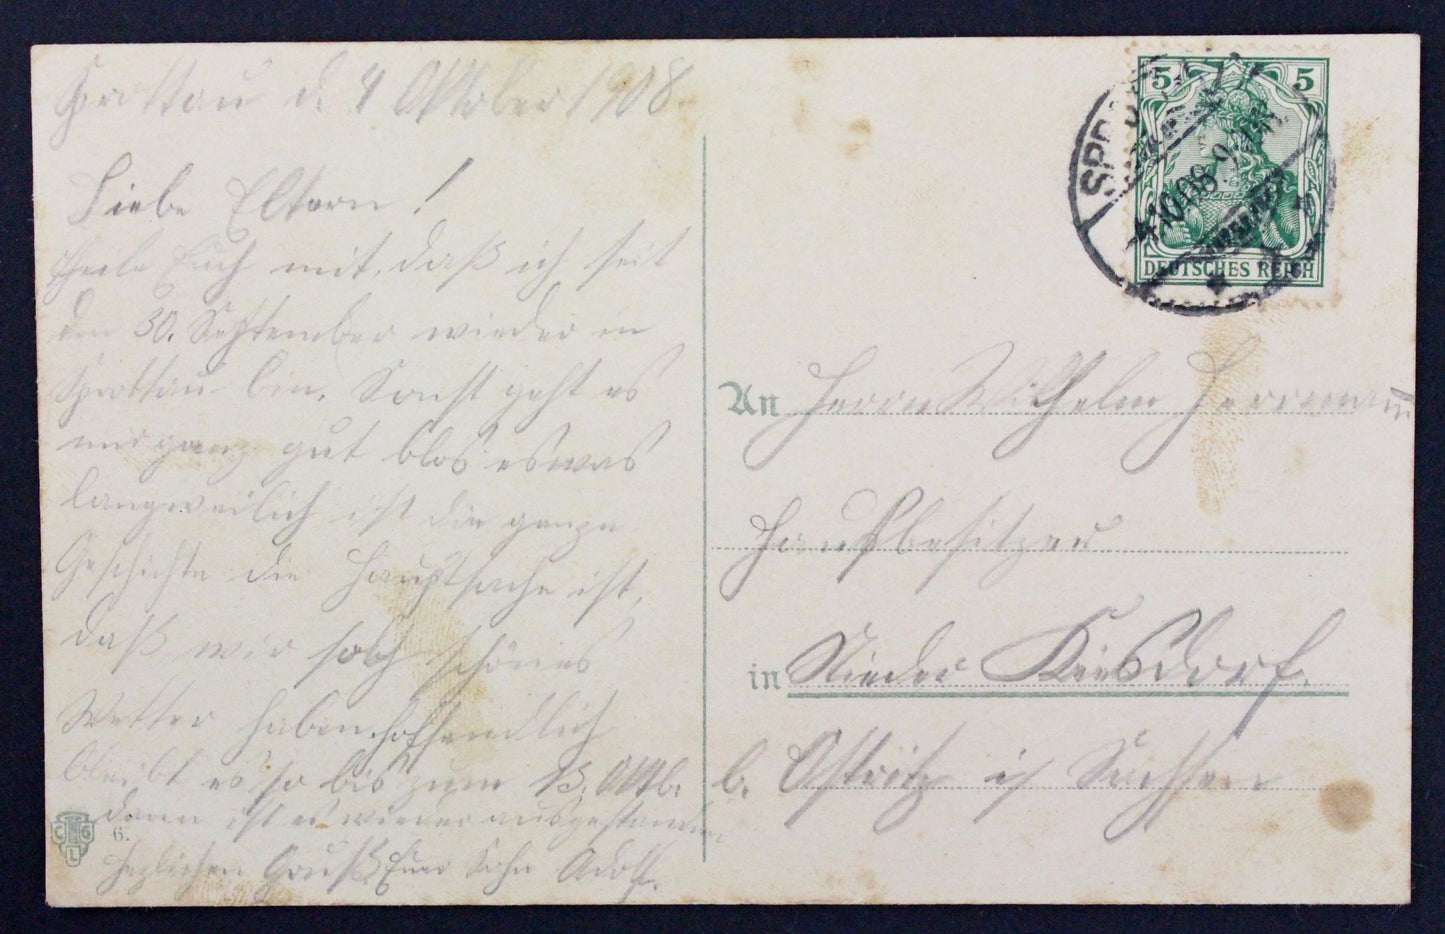 Sprottau d. 4 Oktober 1908.
Liebe Eltern!
Theile Euch mit, daß ich seit
den 30. September wieder in
Sprottau bin. Sonst geht es
mir ganz gut blos etwas
langweilich ist die ganze
Geschichte die Hauptsache ist,
daß wir solch schönes
Wetter haben, hoffendlich
bleibt es so bis zum 13. Oktb.
dann ist es wieder ausgestanden
Herzlichen Gruß Euer Sohn Adolf.
C G L
6.
5 5
DEUTSCHES REICH
SPROTTAU
4.10.08.9
An Herrn Wilhelm Herrmann
Hausbesitzer
in Nieder
b. Ostritz i/ Sachsen